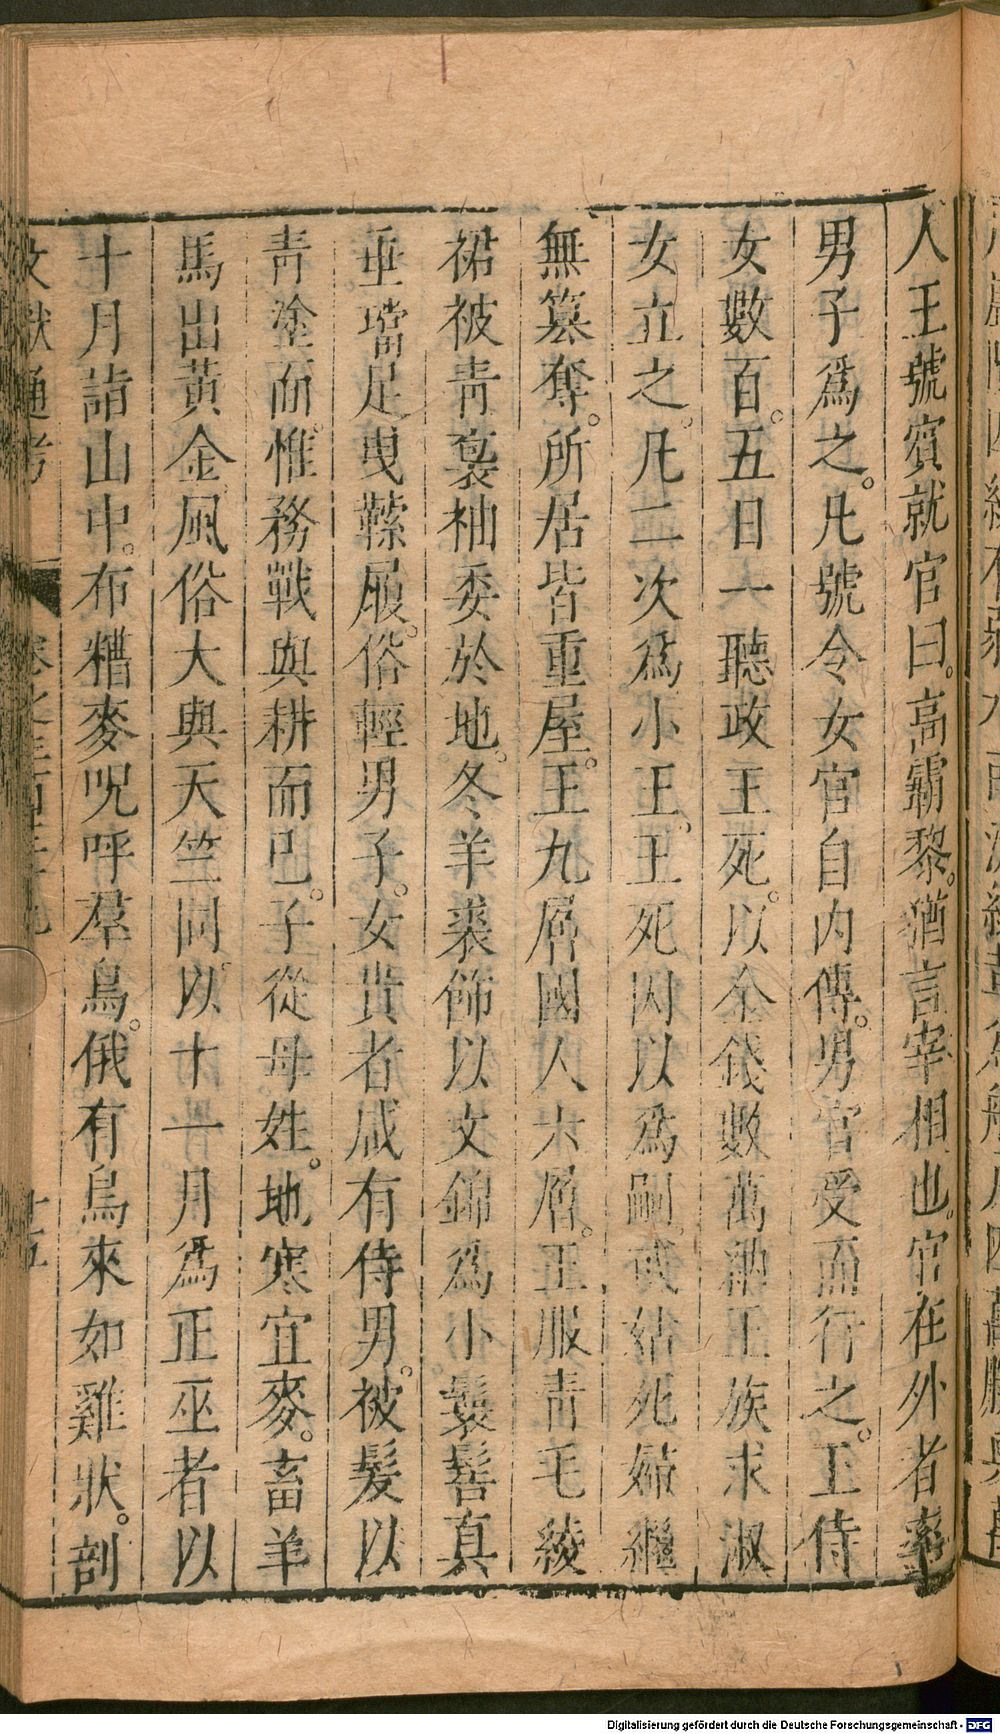 人王號賓就官曰。高霸黎。猶言宰相也。官在外者率
男子爲之。凡號令女官自內傳。男官受而行之。王侍
女數百。五日一聽政王死。以金錢數萬納王族求淑
女立之。凡二次爲小王。王死因以爲嗣。或姑死婦繼
無篡奪。所居皆重屋。王九層國人六層。王服青毛綾
裙被青袍袖委於地。冬羊裘飾以文錦爲小鬟髻真
垂璫足曳鞣履。俗輕男子。女貴者咸有侍男。被髮以
青塗面。惟務戰與耕而已。子從母姓。地寒宜麥。畜羊
馬出黃金。風俗大與天竺同。以十一月爲正巫者以
十月詣山中。布糟麥呪呼羣鳥。俄有鳥來如雞狀。剖
文獻通考
十五
Digitalisierung gefördert durch die Deutsche Forschungsgemeinschaft - DFG